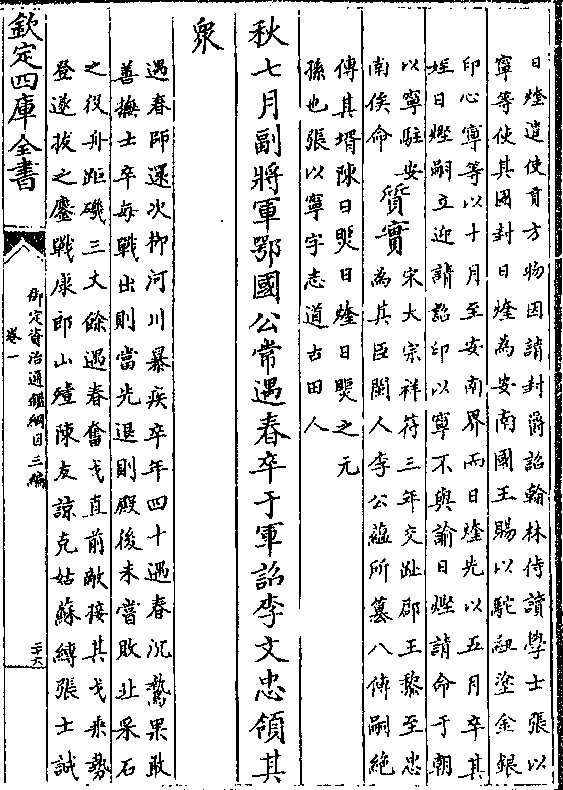 日煃遣使貢方物因請封爵詔翰林侍讀學士張以
寧等使其國封日煃為安南國王賜以駝紐塗金銀
印心寧等以十月至安南界而日煃先以五月卒其
姪日熞嗣立迎請詔印以寧不與諭日熞請命于朝
以寧駐安
南侯命
質實
宋大宗祥符三年交趾郡王黎至忠
為其臣閩人李公蘊所篡八傳嗣絶
傳其壻陳日煚日煃日煚之元
孫也張以寧字志道古田人
秋七月副將軍鄂國公常遇春卒于軍詔李文忠領其
衆
遇春師還次柳河川暴疾卒年四十遇春沉鷙果敢
善撫士卒每戰出則當先退則殿後未嘗敗北采石
之役舟距磯三丈餘遇春奮戈直前敵接其戈乘勢
登遂拔之鏖戰康郎山殪陳友諒克姑蘇縛張士誠
欽定四庫全書
御定資治通鑑綱目三編
卷一
三六